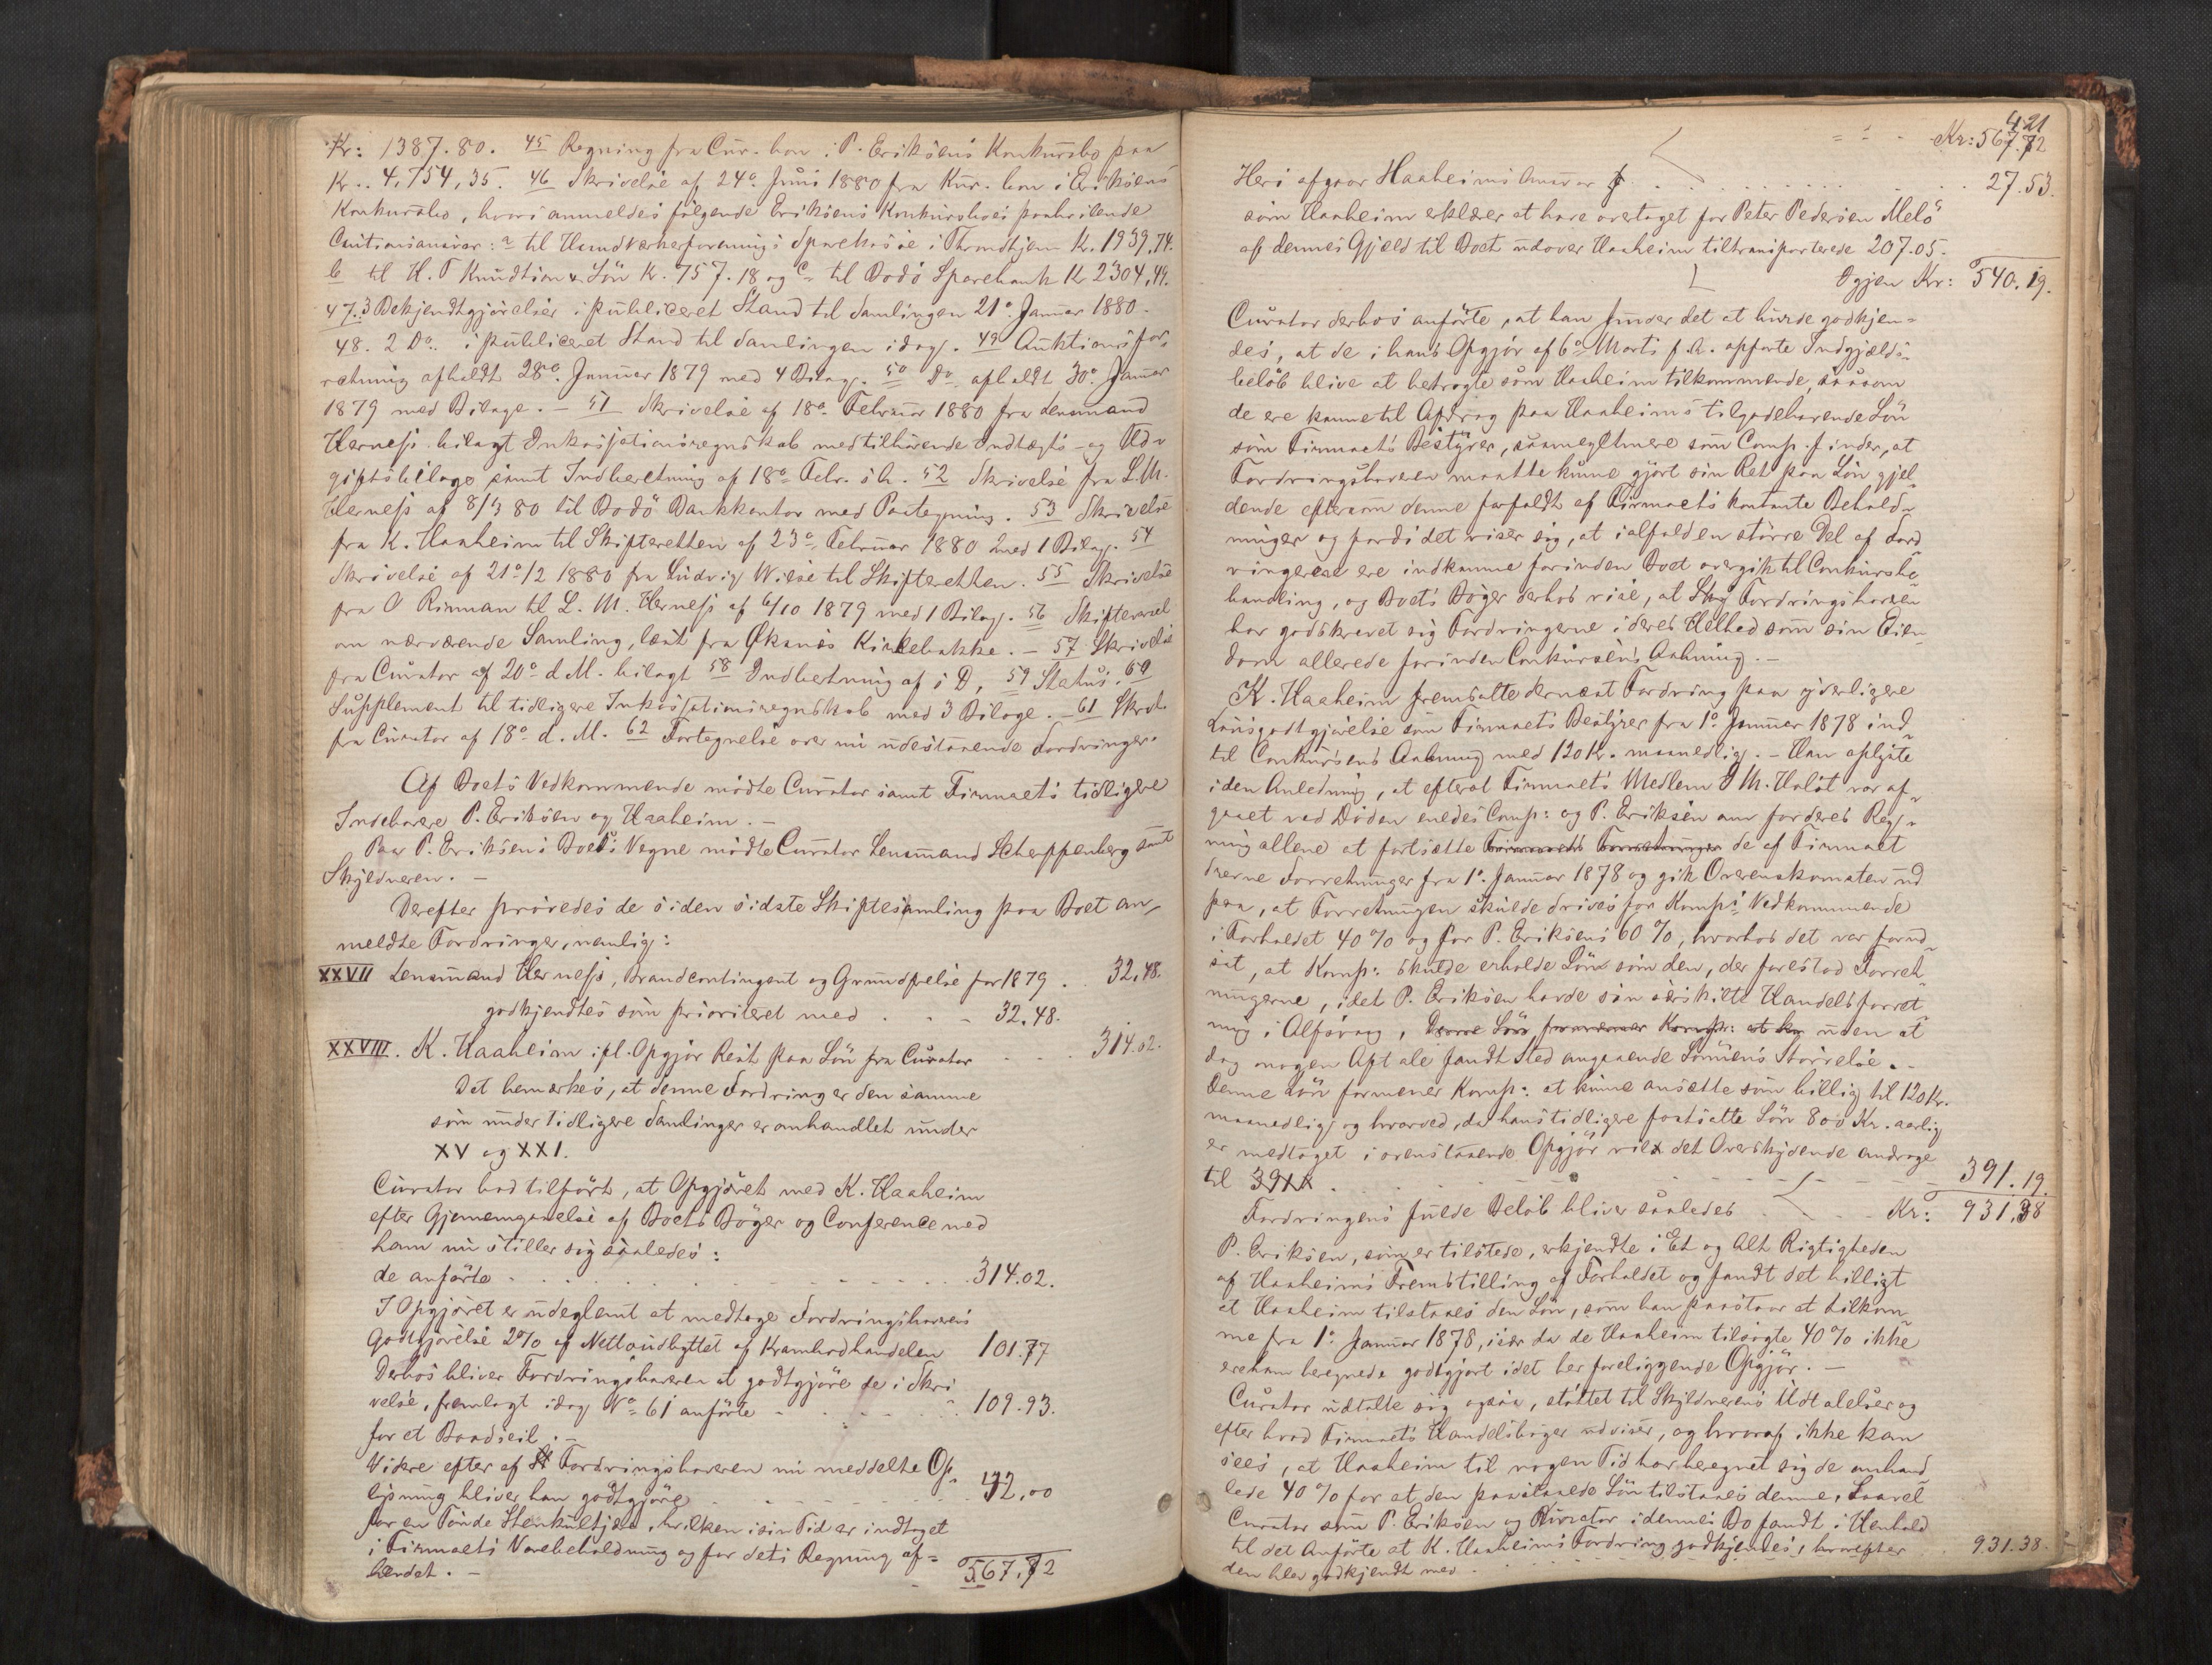 Kr: 1387.80. 45 Regning fra Cur. bon. i P. Eriksens Konkursbo paa
Kr.. 4,754,35. 46 Skrivelse af 24de Juni 1880 fra Kur. bon i Eriksens
Konkursbo, hvori anmeldes følgende Eriksens Konkursboes paahvilende
Cautionsansvar: a til Haandværkerforenings Sparekasse i Throndhjem Kr. 1939,74.
b til H. T Knudtzon & Søn Kr. 757.18 og c til Bodö Sparebank Kr 2304,49.
47. 3 Bekjendtgjørelser i publiceret Stand til Samlingen 21de Januar 1880.
48. 2 Do. i publiceret Stand til Samlingen idag. 49 Auktionsfor-
retning afholdt 28de Januar 1879 med 4 Bilag. 50 Do afholdt 30de Januar
1879 med Bilage. — 51 Skrivelse af 18de Februar 1880 fra Lensmand
Herness bilagt Inkassationsregnskab med tilhørende Indtægts- og Ud-
giftsbilage samt Indberetning af 18de Febr. s. A. 52 Skrivelse fra L. M.
Herness af 8/3 80 til Bodö Bankkontor med Paategning. 53 Skrivelse
fra K. Haaheim til Skifteretten af 23de Februar 1880 med 1 Bilag. 54
Skrivelse af 21de/2 1880 fra Ludvig Wiese til Skifteretten. 55 Skrivelse
fra O Rinman til L. M. Herness af 6/10 1879 med 1 Bilag. 56 Skiftevarsel
om nærværende Samling, læst fra Øksnes Kirkebakke. — 57 Skrivelse
fra Curator af 20de d. M. bilagt 58 Indberetning af s. D, 59 Status. 60
Supplement til tidligere Inkassationsregnskab med 3 Bilage. — 61 Skrivelse
fra Curator af 18de d. M. 62 Fortegnelse over nu udestaaende Fordringer.
Af Boets Vedkommende mødte Curator samt Firmaets tidligere
Indehavere P. Eriksen og Haaheim. —
Paa P. Eriksens Boets Vegne mødte Curator Lensmand Scheppenberg samt
Skyldneren. —
Derefter prøvedes de siden sidste Skiftesamling paa Boet an-
meldte Fordringer, nemlig:
XXVII Lensmand Herness, Brandcontingent og Grundfrelse for 1879 . . 32,48.
godkjendtes som prioriteret med . . - 32.48.
XXVIII. K. Haaheim ifl. Opgjør Rest paa Løn fra Curator - - - 314.02.
Det bemærkes, at denne Fordring er den samme
som under tidligere Samlinger er anhandlet under
XV og XXI.
Curator bad tilført, at Opgjøret med K. Haaheim
efter Gjennemgaaelse af Boets Bøger og Conference med
ham nu stiller sig saaledes:
de anførte . . . . . . . . . 314.02.
I Opgjøret er udeglemt at medtage Fordringshaverens
Godtgjørelse 2% af Nettoudbyttet af Krambodhandelen 101.77
Derhos bliver Fordringshaveren at godtgjøre de i Skri
velse, fremlagt idag No 61 anførte - - - - 109.93.
for et Baadseil. —
Videre efter af Fordringshaveren nu meddelte Op-
lysning bliver han godtgjøre - - - - - 42,00
for en Tønde Stenkultjære, hvilken i sin Tid er indtaget
i Firmaets Varebeholdning og for dets Regning af-
hændet. — 567,72
421
Kr: 567.72
Heri afgaar Haaheims Ansvar . . . . . . . 27.53.
som Haaheim erklærer at have overtaget for Peter Pedersen Melö
af dennes Gjæld til Boet udover Haaheim tiltransporterede 207.05.
Igjen Kr: 540.19.
Curator derhos anførte, at han finder det at burde godkjen-
des, at de i hans Opgjør af 6te Marts f. A. opførte Indgjælds-
beløb blive at betragte som Haaheim tilkommende, saasom
de ere komne til Afdrag paa Haaheims tilgodehavende Løn
som Firmaets Bestyrer, saameget mere som Comp. finder, at
Fordringshaveren maatte kunne gjort sin Ret paa Løn gjel-
dende eftersom denne forfaldt af Firmaets kontante Behold-
ninger og fordi det viser sig, at ialfald en større Del af Ford
ringerne ere indkomne forinden Boet overgik til Conkursbe
handling, og Boets Bøger derhos vise, at Fordringshaveren
har godskrevet sig Fordringerne i deres Helhed som sin Eien-
dom allerede forinden Conkursens Aabning. —
K. Haaheim fremsatte dernæst Fordring paa yderligere
Lønsgodtgjørelse som Firmaets Bestyrer fra 1de Januar 1878 ind-
til Conkursens Aabning med 120 Kr. maanedlig. — Han oplyste
i den Anledning, at efterat Firmaets Medlem I. M. Halst var af-
gaaet ved Døden enedes Comp: og P. Eriksen om for deres Reg-
ning allene at fortsætte Firmaets Forretninger de af Firmaet
drevne Forretninger fra 1de Januar 1878 og gik Overenskomsten ud
paa, at Forretningen skulde drives for Komp:s Vedkommende
i Forholdet 40 % og for P. Eriksens 60 %, hvorhos det var forud-
sat, at Komp: skulde erholde Løn som den, der forestod Forret-
ningerne, idet P. Eriksen havde sin særskilte Handelsforret-
ning i Alsvaag, Denne Løn formener Komp: at kun uden at
dog nogen Aftale fandt Sted angaaende Lønnens Størrelse. -
Denne Løn formener Komp: at kunne ansætte som billig til 120 Kr.
maanedlig og hvorved, da hans tidligere fastsatte Løn 800 Kr. aarlig
er medtaget i ovenstaaende Opgjør vil det Overskydende andrage
til . . . . . . . . . 391.19.
Fordringens fulde Beløb bliver saaledes . . . Kr: 931,38
P. Eriksen, som er tilstede, erkjendte i Et og Alt Rigtigheden
af Haaheims Fremstilling af Forholdet og fandt det billigt
at Haaheim tilstaaes den Løn, som han paastaar at tilkom-
me fra 1de Januar 1878, især da de Haaheim tilsagte 40% ikke
ere ham beregnede godtgjort i det her foreliggende Opgjør. —
Curator udtalte sig ogsaa, støttet til Skyldnerens Udtalelser og
efter hvad Firmaets Handelsbøger udviser, og hvoraf ikke kan
sees, at Haaheim til nogen Tid har beregnet sig de anhand
lede 40 % for at den paastaaede Løn tilstaaes denne, Saavel
Curator som P. Eriksen og Kurator i dennes Bo fandt i Henhold
til det Anførte at K. Haaheims Fordring godkjendes, hvorefter
den blev godkjendt med . . . . 931.38.